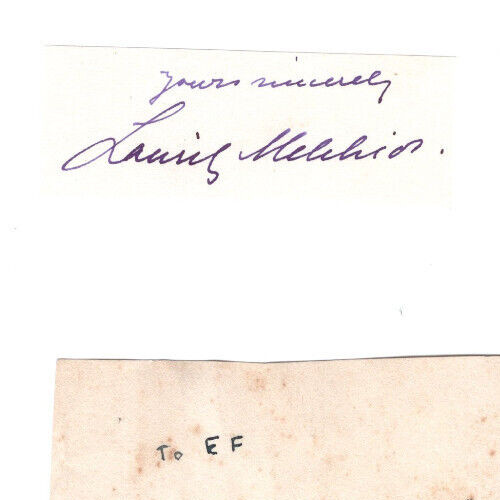 Yours sincerely
Lauritz Melchior.
To EF